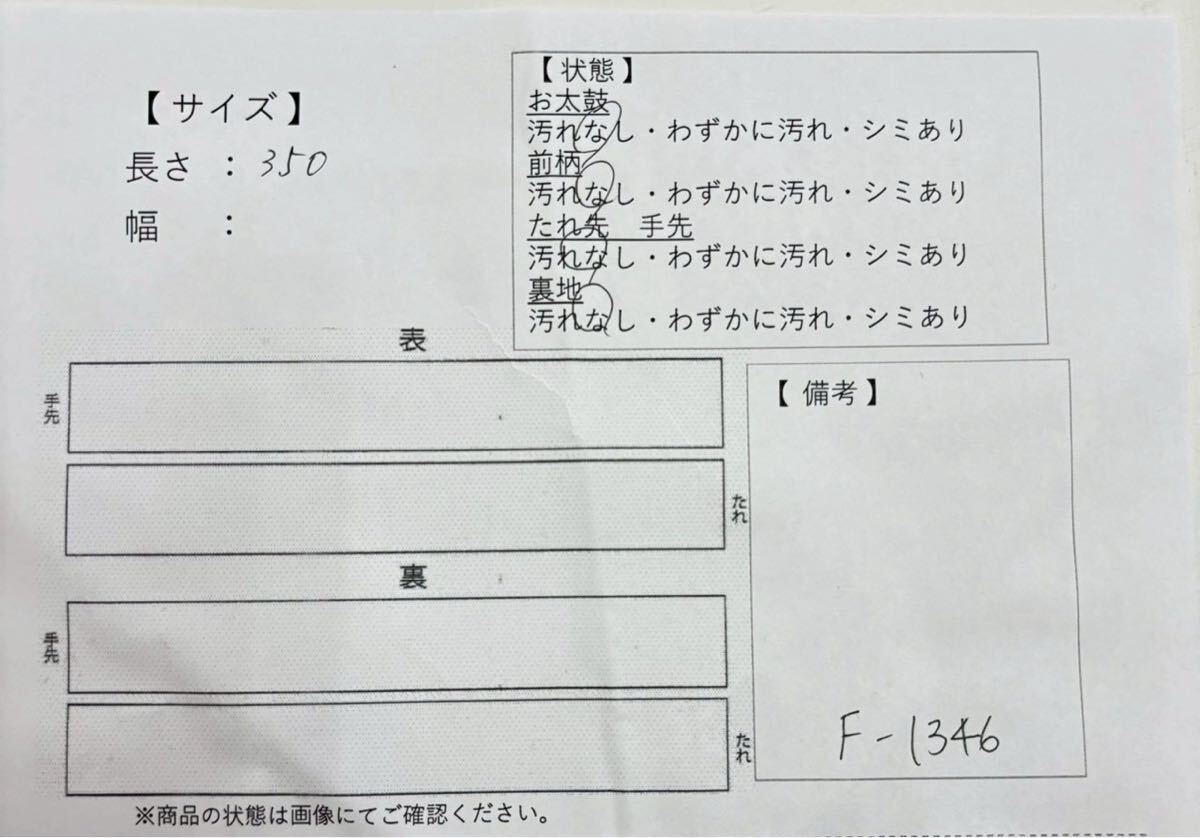 【 サイズ 】
長さ ： 350
幅 ：
【 状態 】
お太鼓
汚れなし・わずかに汚れ・シミあり
前柄
汚れなし・わずかに汚れ・シミあり
たれ先 手先
汚れなし・わずかに汚れ・シミあり
裏地
汚れなし・わずかに汚れ・シミあり
表
手先
たれ
裏
手先
たれ
【 備考 】
F-1346
※商品の状態は画像にてご確認ください。